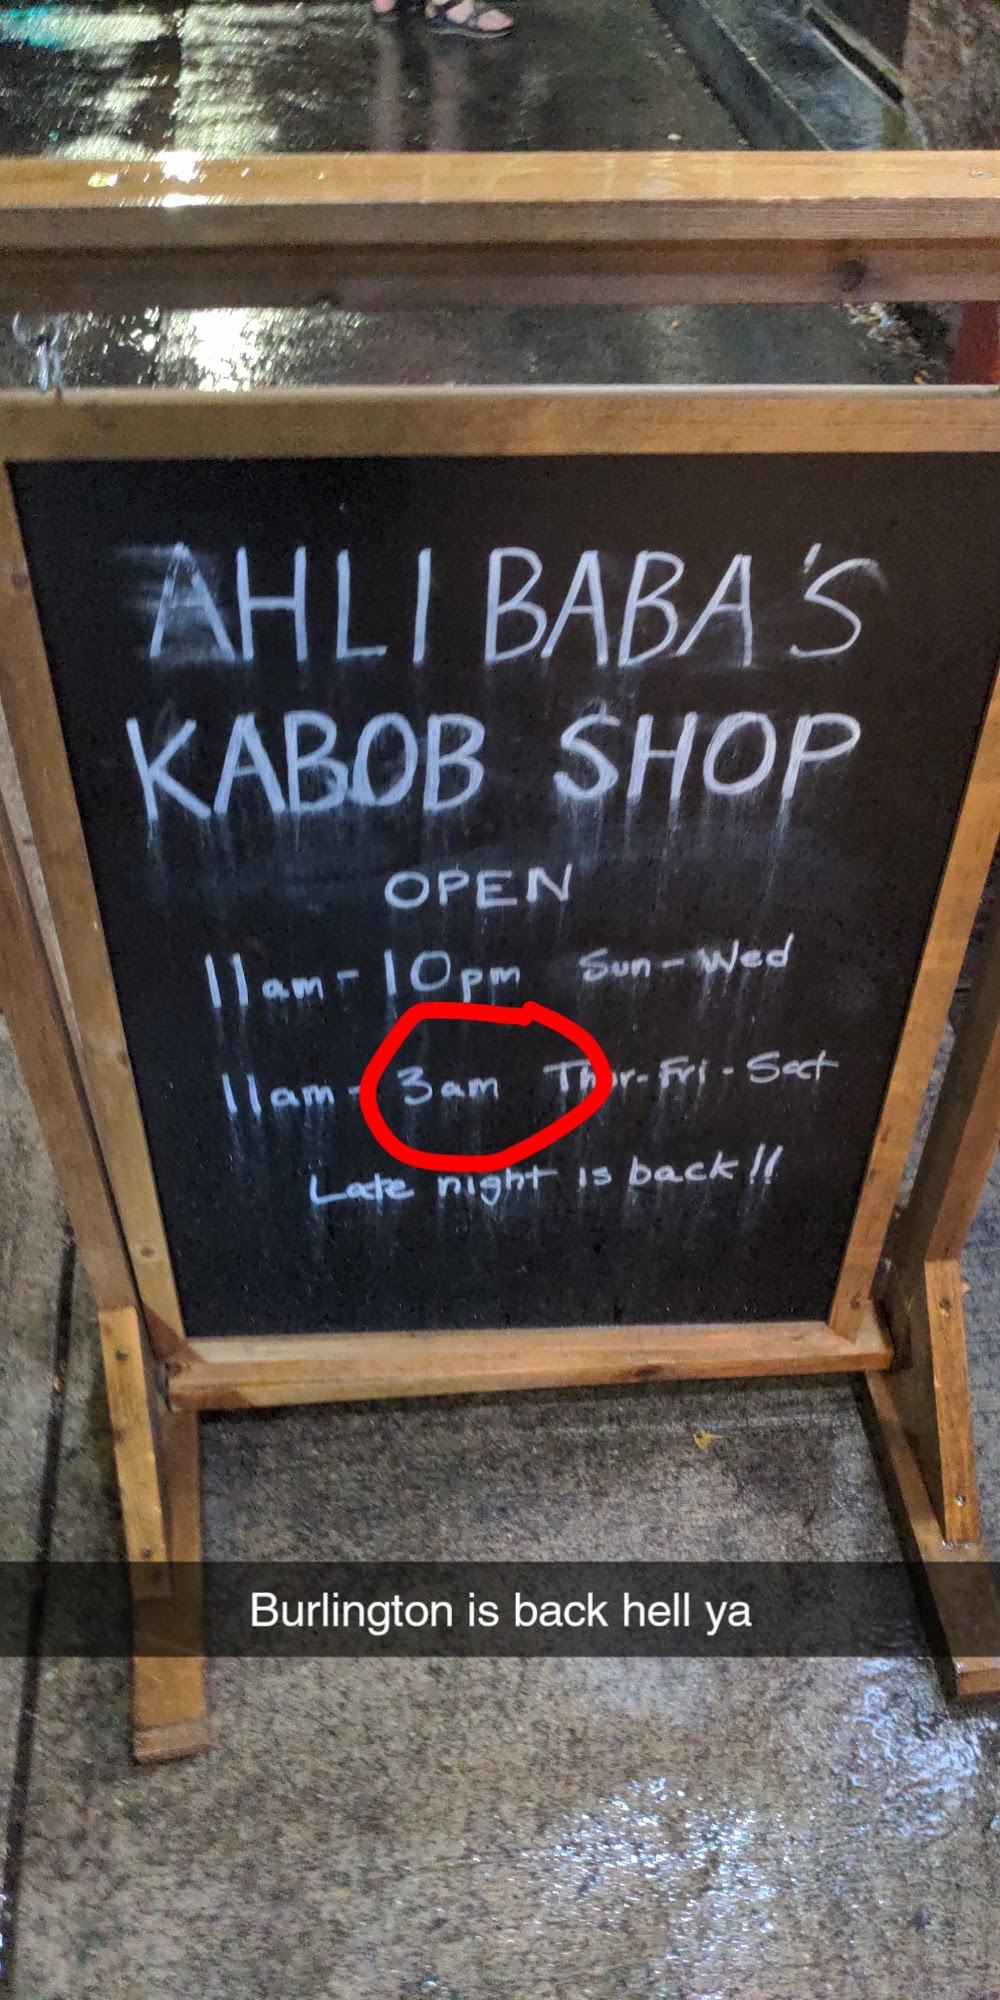 AHLI BABA'S
KABOB SHOP
OPEN
11am-10pm Sun-Wed
11am-3am Thur-Fri-Sat
Late night is back!!
Burlington is back hell ya